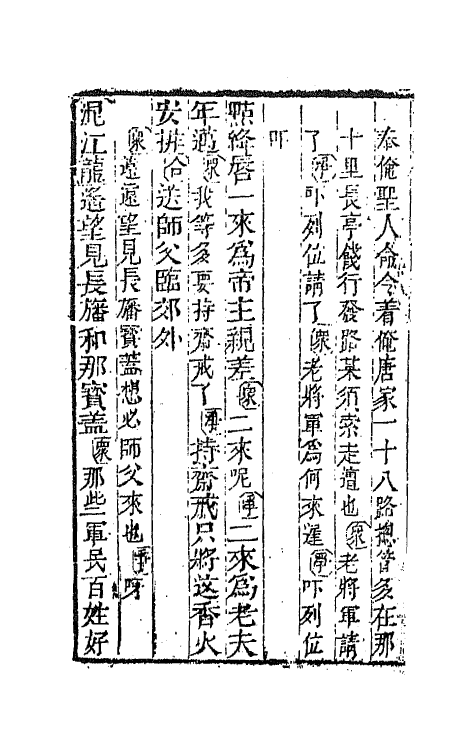 奉俺聖人命令着俺唐家一十八路摠管多在那
十里長亭餞行發路某須索走遭也(衆)老將軍請
了(淨)吓列位請了(衆)老將軍爲何來遲(淨)吓列位
吓
點絳唇一來爲帝主親差(衆)二來呢(淨)二來爲老夫
年邁(衆)我等多要持齋戒了(淨)持齋戒只將这香火
安排(合)送師父臨郊外
(衆)遠遠望見長旛寳蓋想必師父來也(淨)呀
混江龍遙望見長旛和那寳盖(衆)那些軍民百姓好